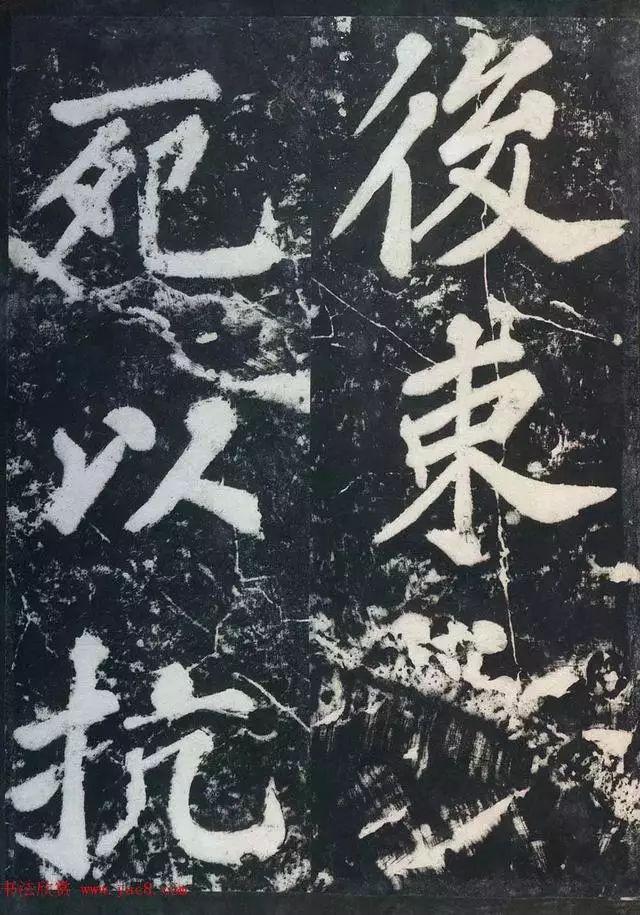 後束
死以抗
书法欣赏 www.yac8.com